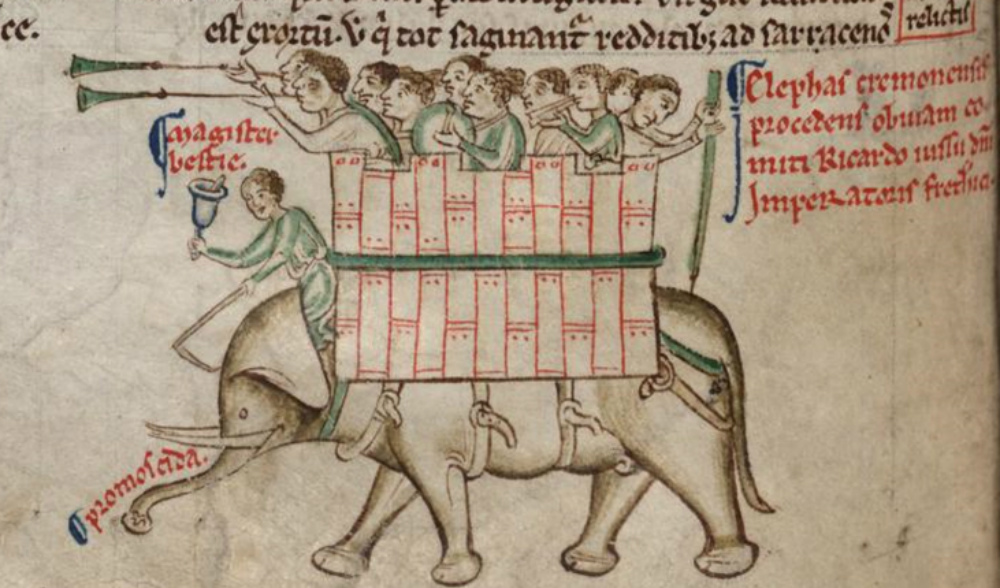 ce.
est exortū. V q̄ tot saginant᷑ redditib; ad sarraceno᷒
relictis
Magister
bestie.
Elephas cremonensis
procedens obuiam co-
miti Ricardo iussu dñi
Imperatoris fretherici.
promoscida.